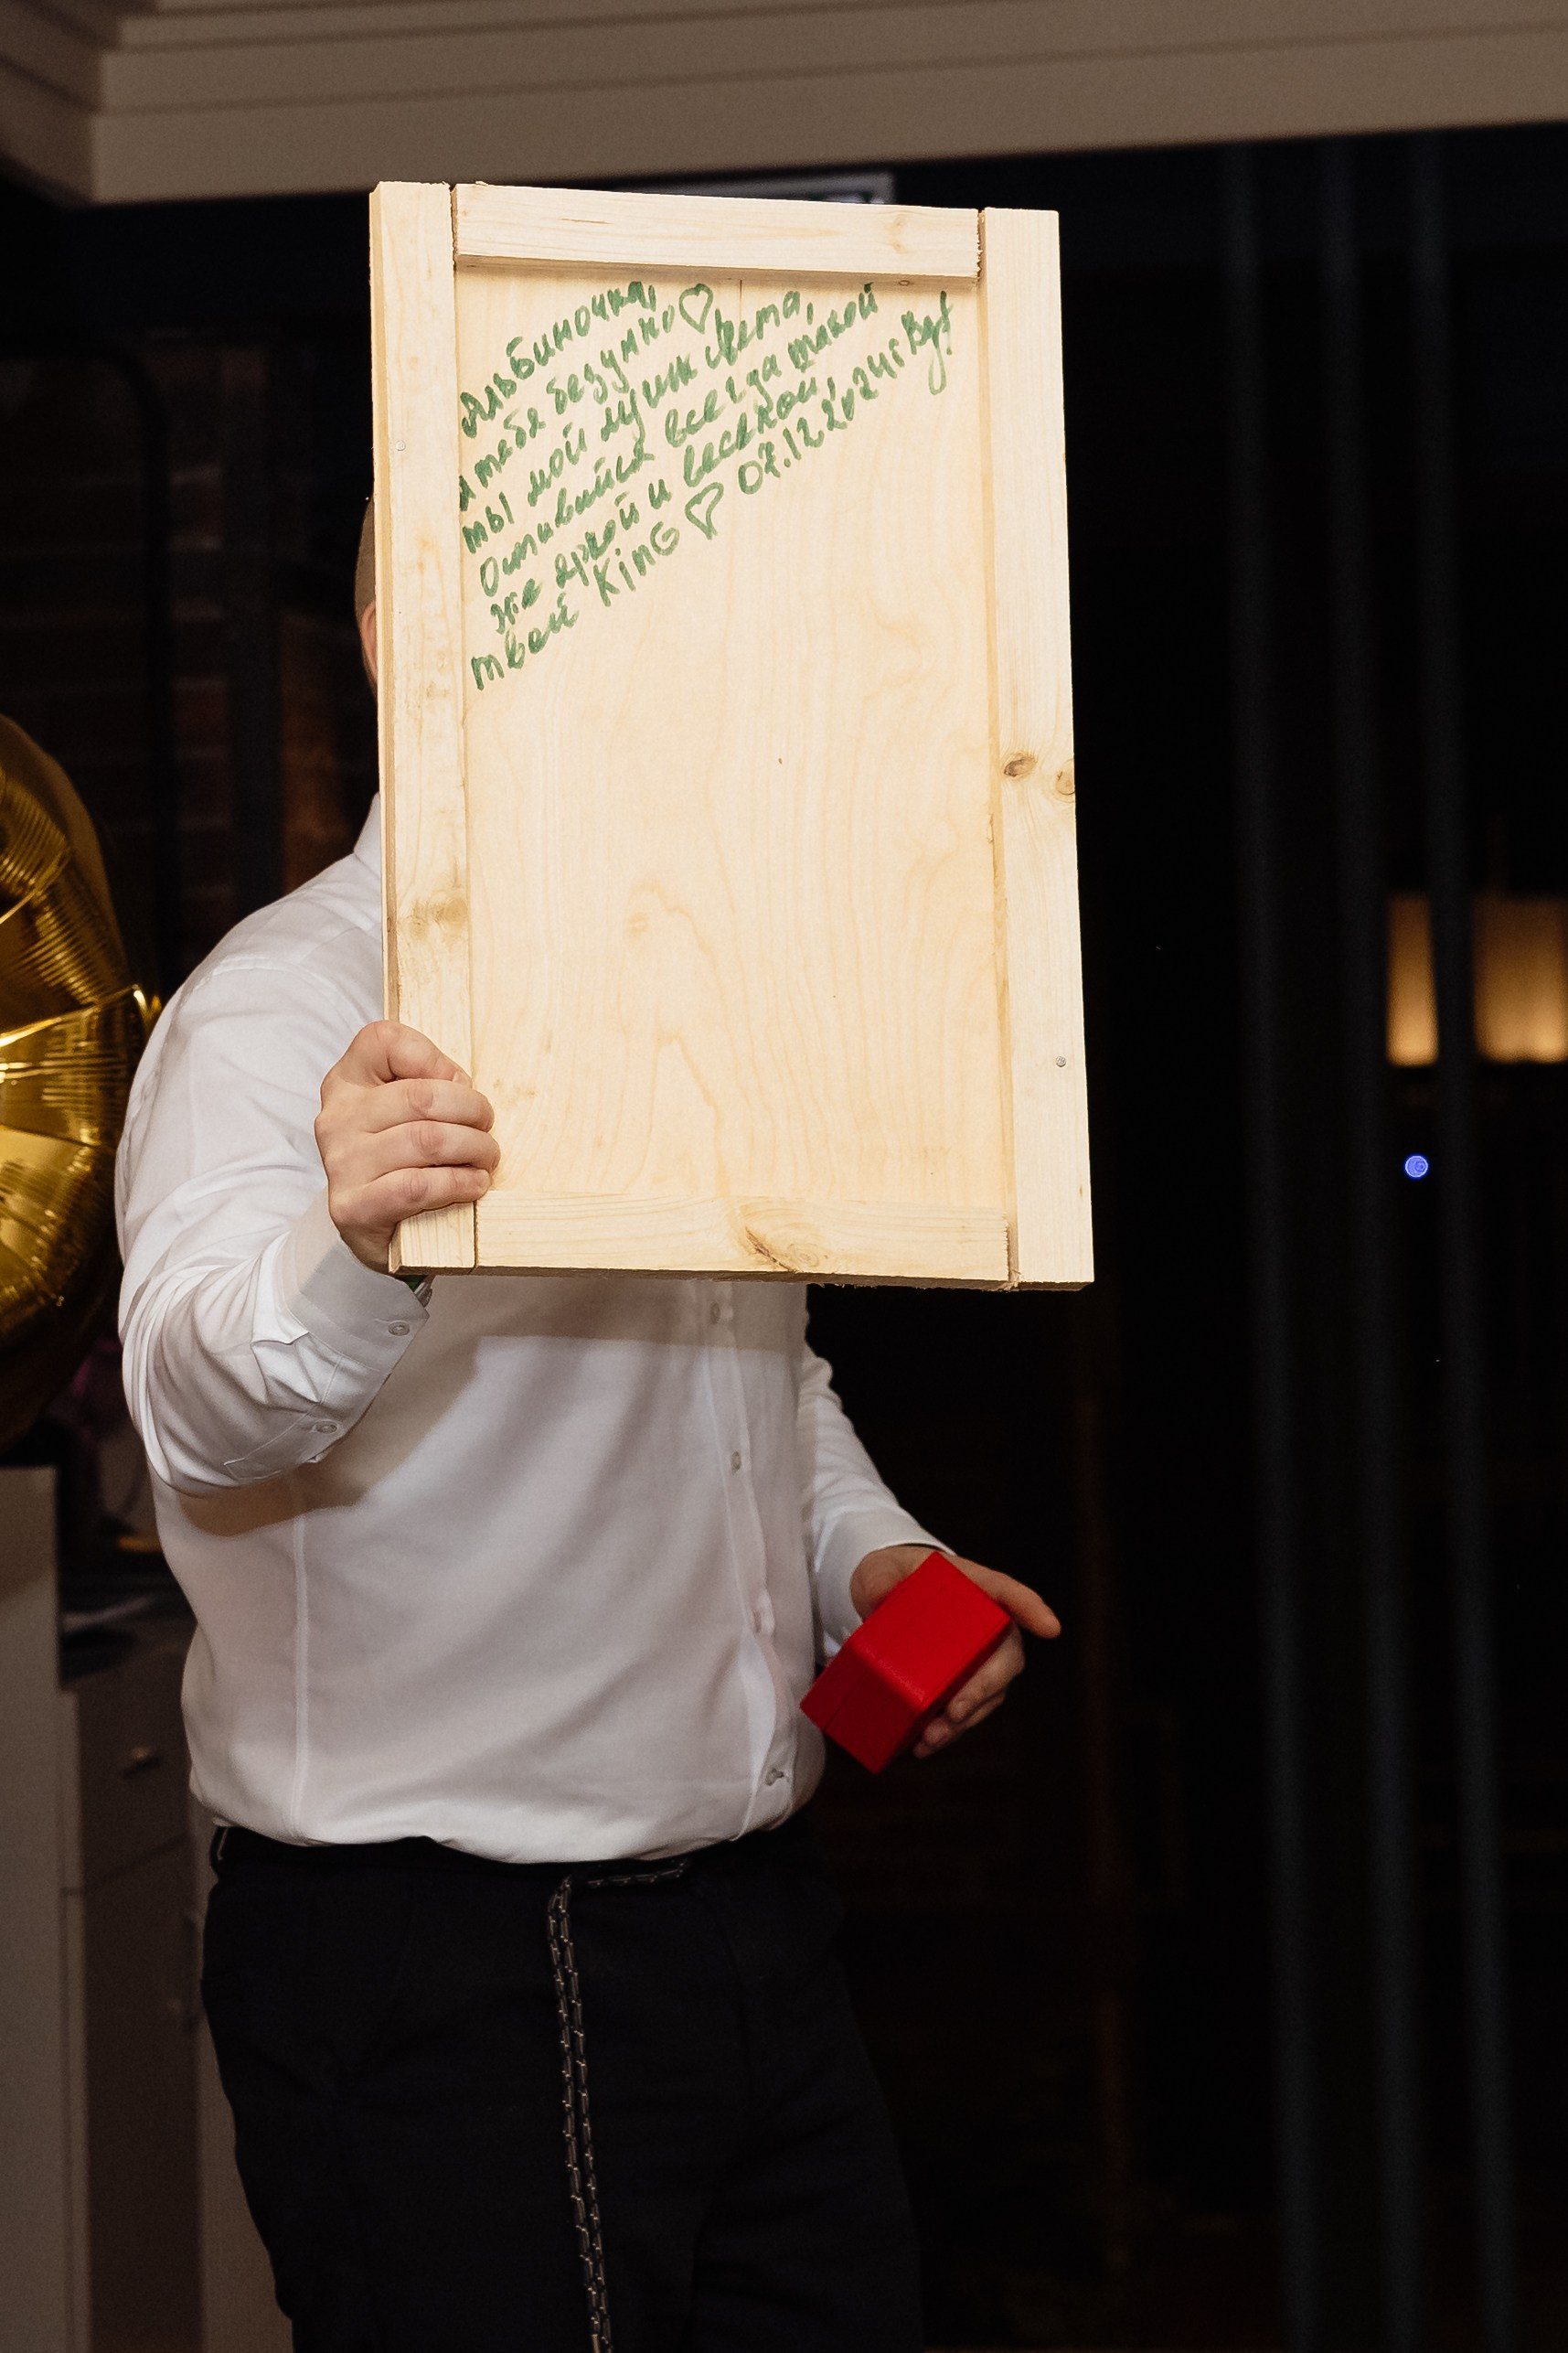 Альбиночка,
я тебя безумно♡
ты мой лучик света,
Оставайся всегда такой
же яркой и веселой,
твой KinG ♡ 07.12.2024г